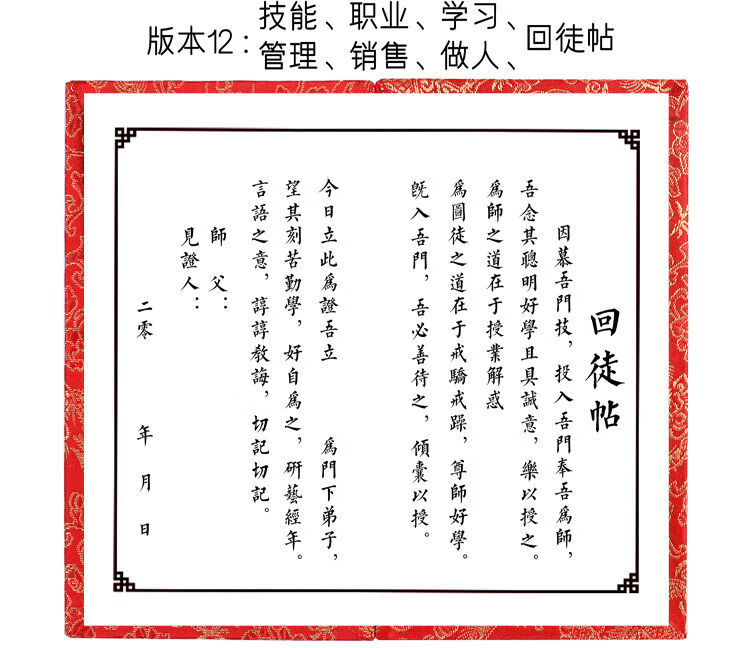 版本12：
技能、职业、学习、
管理、销售、做人、
回徒帖
回徒帖
因慕吾門技，投入吾門奉吾爲師，
吾念其聰明好學且具誠意，樂以授之。
爲師之道在于授業解惑
爲圖徒之道在于戒驕戒躁，尊師好學。
既入吾門，吾必善待之，傾囊以授。
今日立此爲證吾立　　爲門下弟子，
望其刻苦勤學，好自爲之，研藝經年。
言語之意，諄諄教誨，切記切記。
師　父：
見證人：
二零　　年　月　日